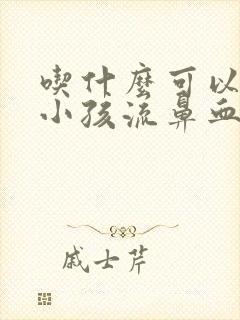 喫什麽可以
小孩流鼻血
戚士芹